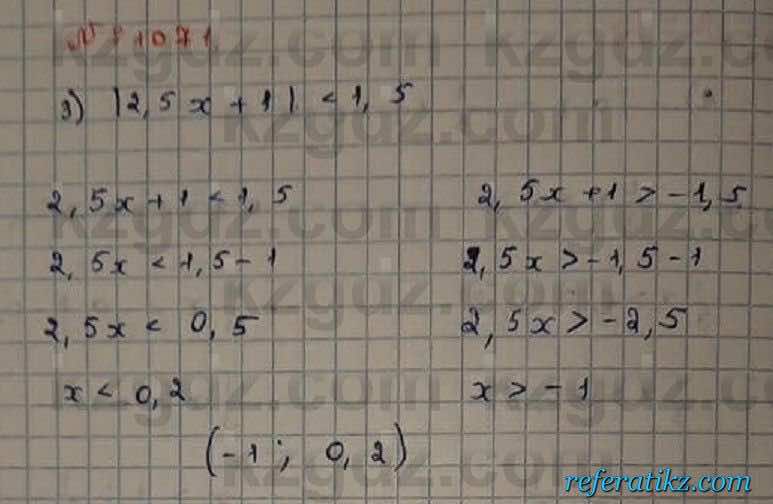 № 1071
3) |2,5x+1| < 1,5
2,5x+1 < 1,5
2,5x < 1,5-1
2,5x < 0,5
x < 0,2
2,5x+1 > -1,5
2,5x > -1,5-1
2,5x > -2,5
x > -1
(-1; 0,2)
kzgdz.com
kzgdz.com
kzgdz.com
kzgdz.com
kzgdz.com
referatikz.com